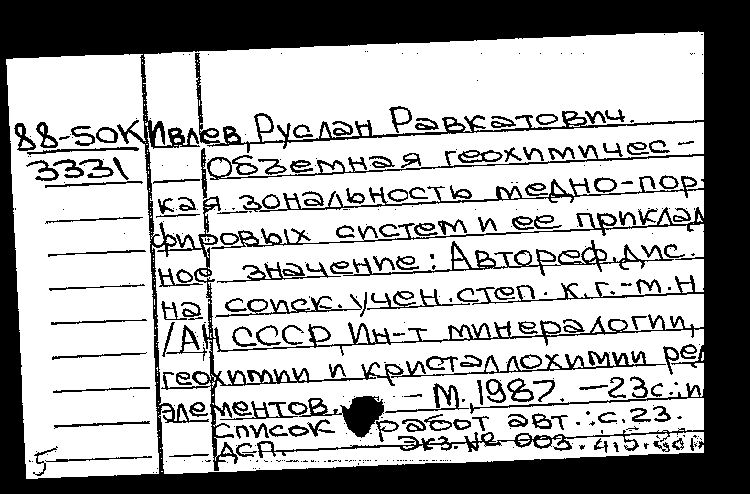 88-50К Ивлев, Руслан Равкатович.
3331 Объемная геохимичес-
кая зональность медно-пор-
фировых систем и ее приклад
ное значение: Автореф.дис.
на соиск.учен.степ.к.г.-м.н.
/АН СССР, Ин-т минералогии,
геохимии и кристаллохимии ред
элементов. - М.,1987. -23с.:и
список работ авт.:с.23.
ДСП. Экз.№ 003.4,5.
5